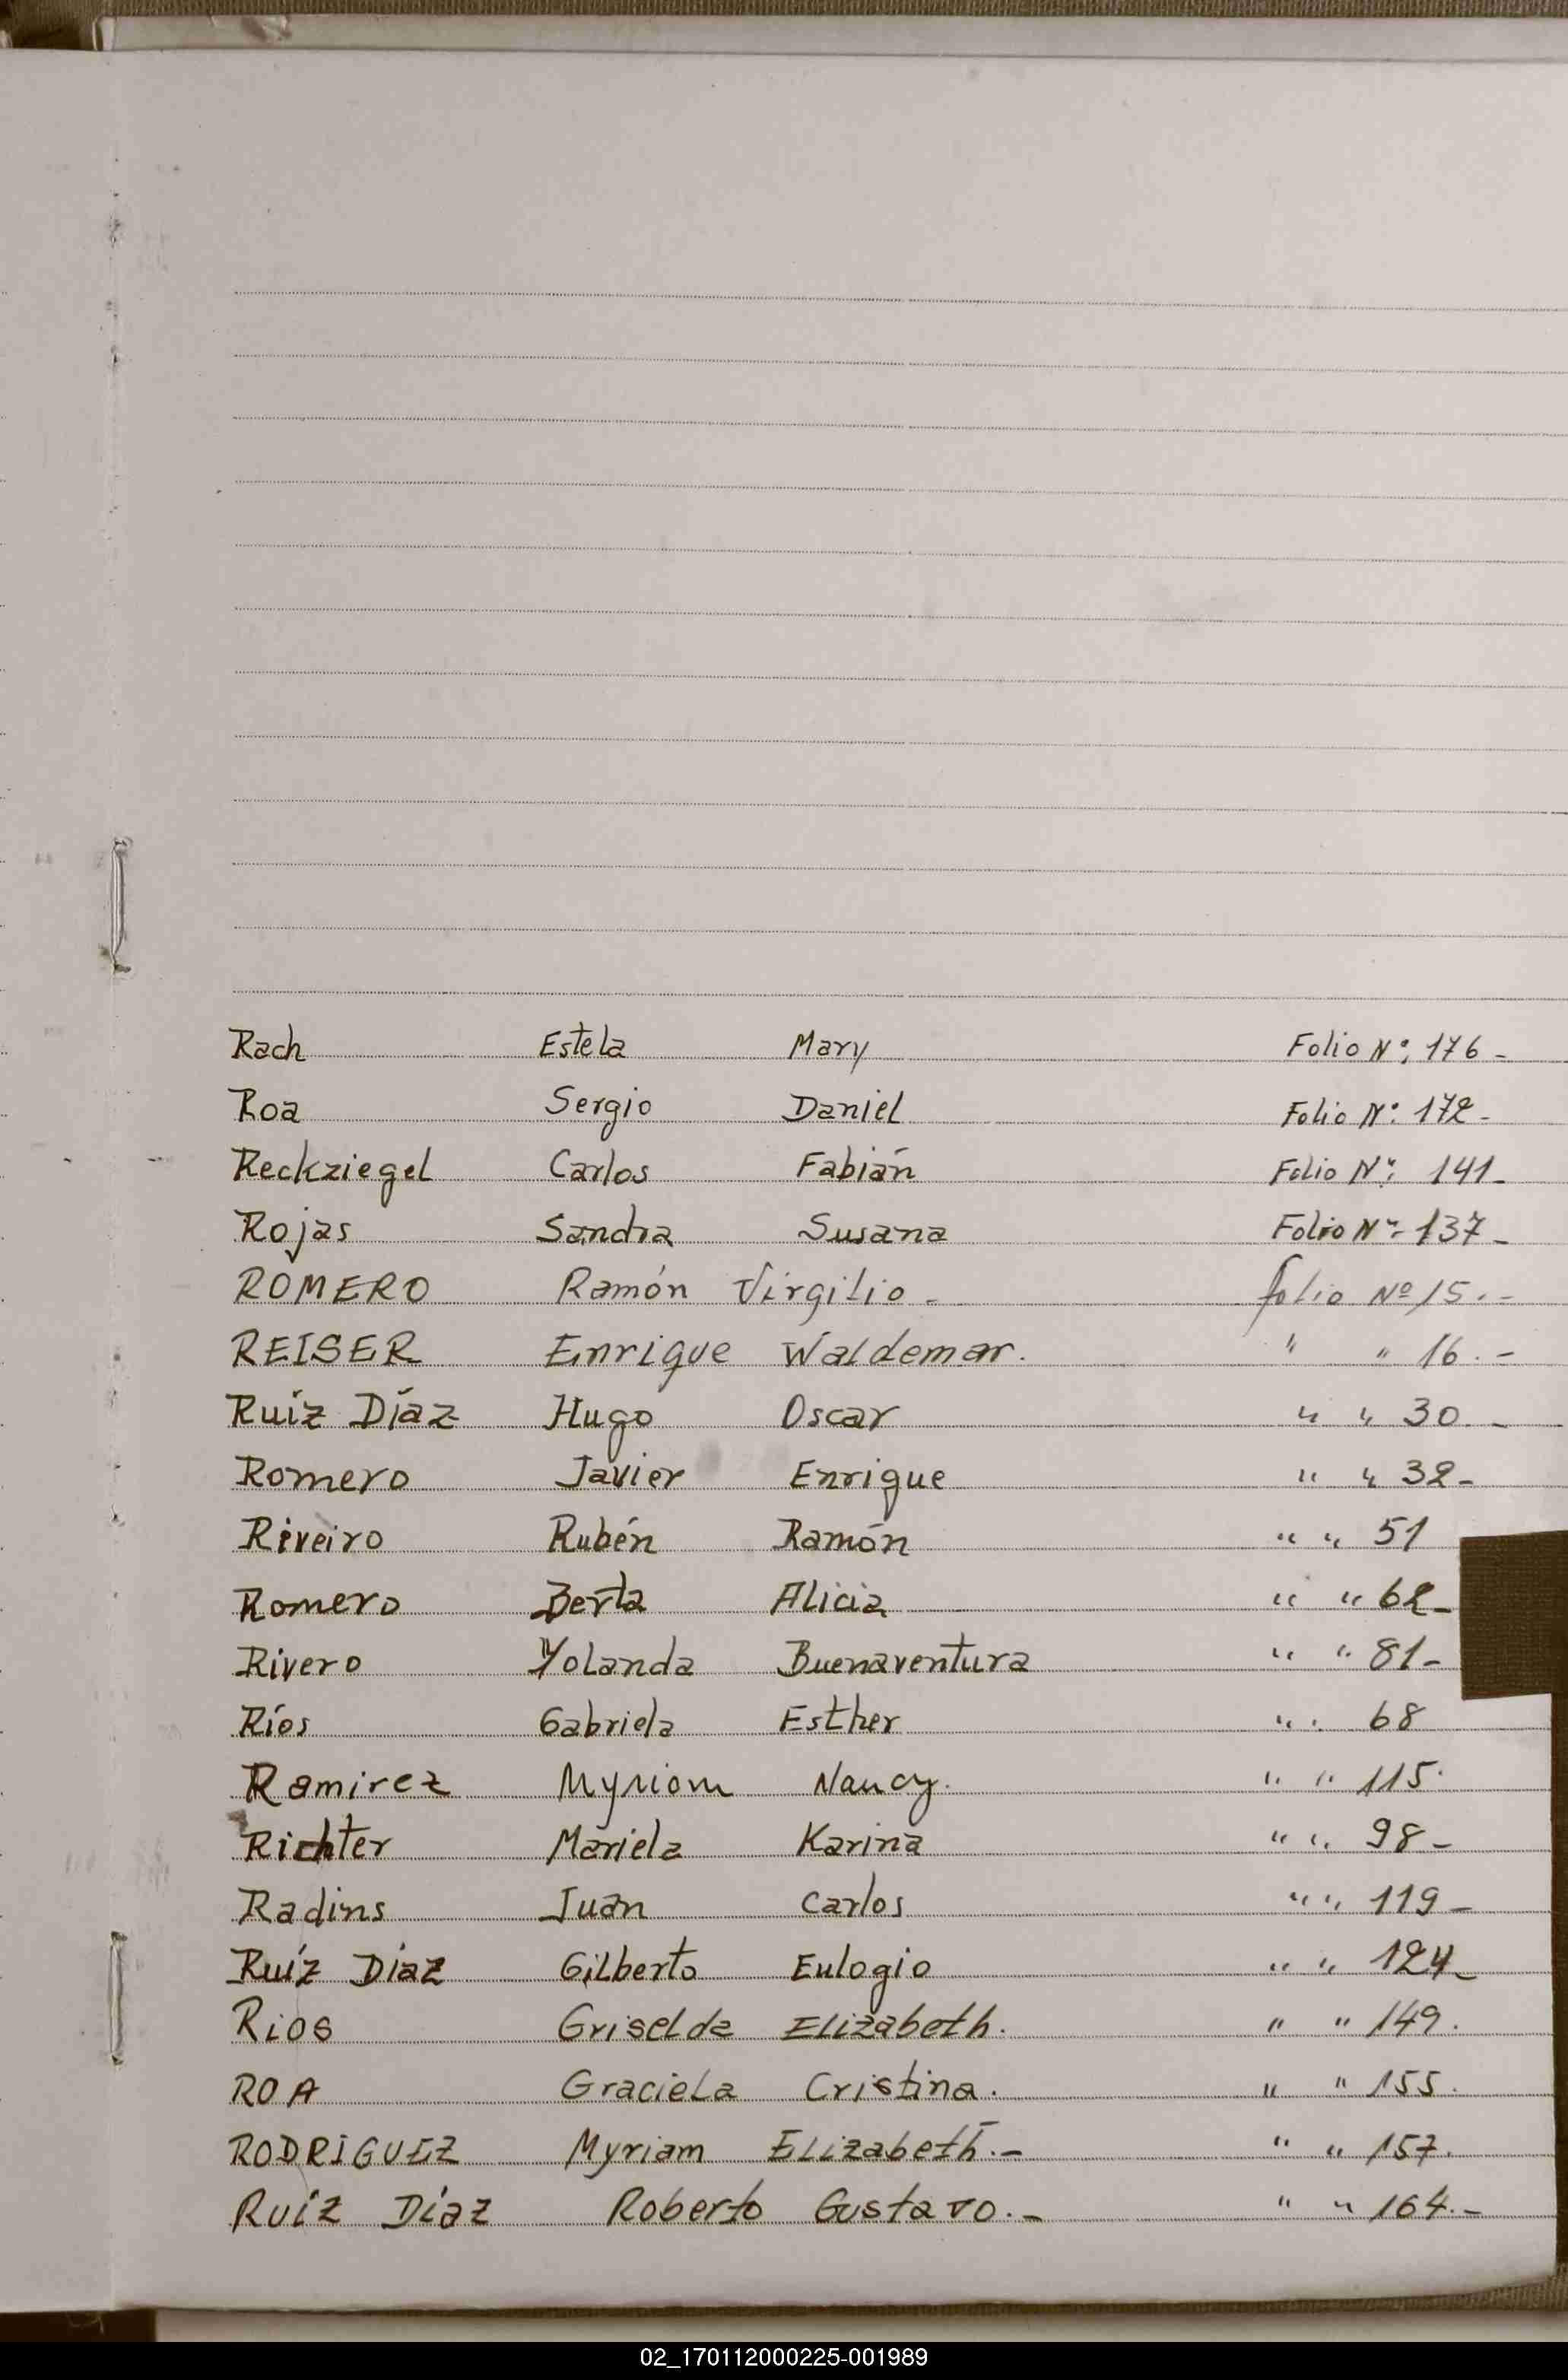 Rach Estela Mary Folio Nº: 176 -
Roa Sergio Daniel Folio Nº: 172 -
Reckziegel Carlos Fabián Folio Nº: 141 -
Rojas Sandra Susana Folio Nº- 137 -
ROMERO Ramón Virgilio - folio Nº 15. -
REISER Enrique Waldemar. " " 16. -
Ruíz Díaz Hugo Oscar " " 30. -
Romero Javier Enrique " " 32 -
Riveiro Rubén Ramón " " 51
Romero Berta Alicia " " 62 -
Rivero Yolanda Buenaventura " " 81 -
Ríos Gabriela Esther " " 68
Ramirez Myriam Nancy. " " 115.
Richter Mariela Karina " " 98 -
Radins Juan Carlos " " 119 -
Ruíz Díaz Gilberto Eulogio " " 124 -
Rios Griselda Elizabeth. " " 149.
ROA Graciela Cristina. " " 155.
RODRIGUEZ Myriam Elizabeth. - " " 157.
Ruiz Díaz Roberto Gustavo. - " " 164. -
02_170112000225-001989